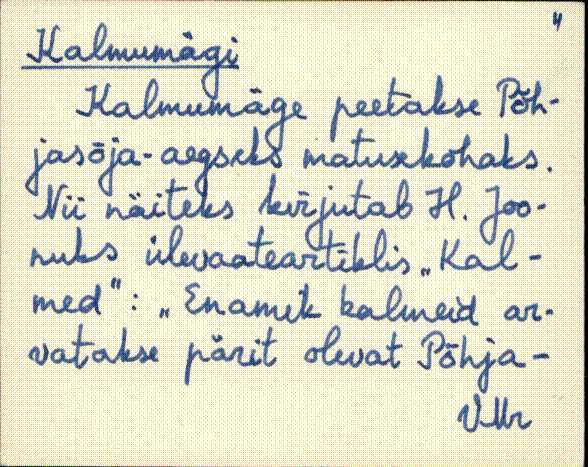 4
Kalmumägi
Kalmumäge peetakse Põh-
jasõja-aegseks matusekohaks.
Nii näiteks kirjutab H. Joo-
nuks ülevaateartiklis „Kal-
med": „Enamik kalmeid ar-
vatakse pärit olevat Põhja-